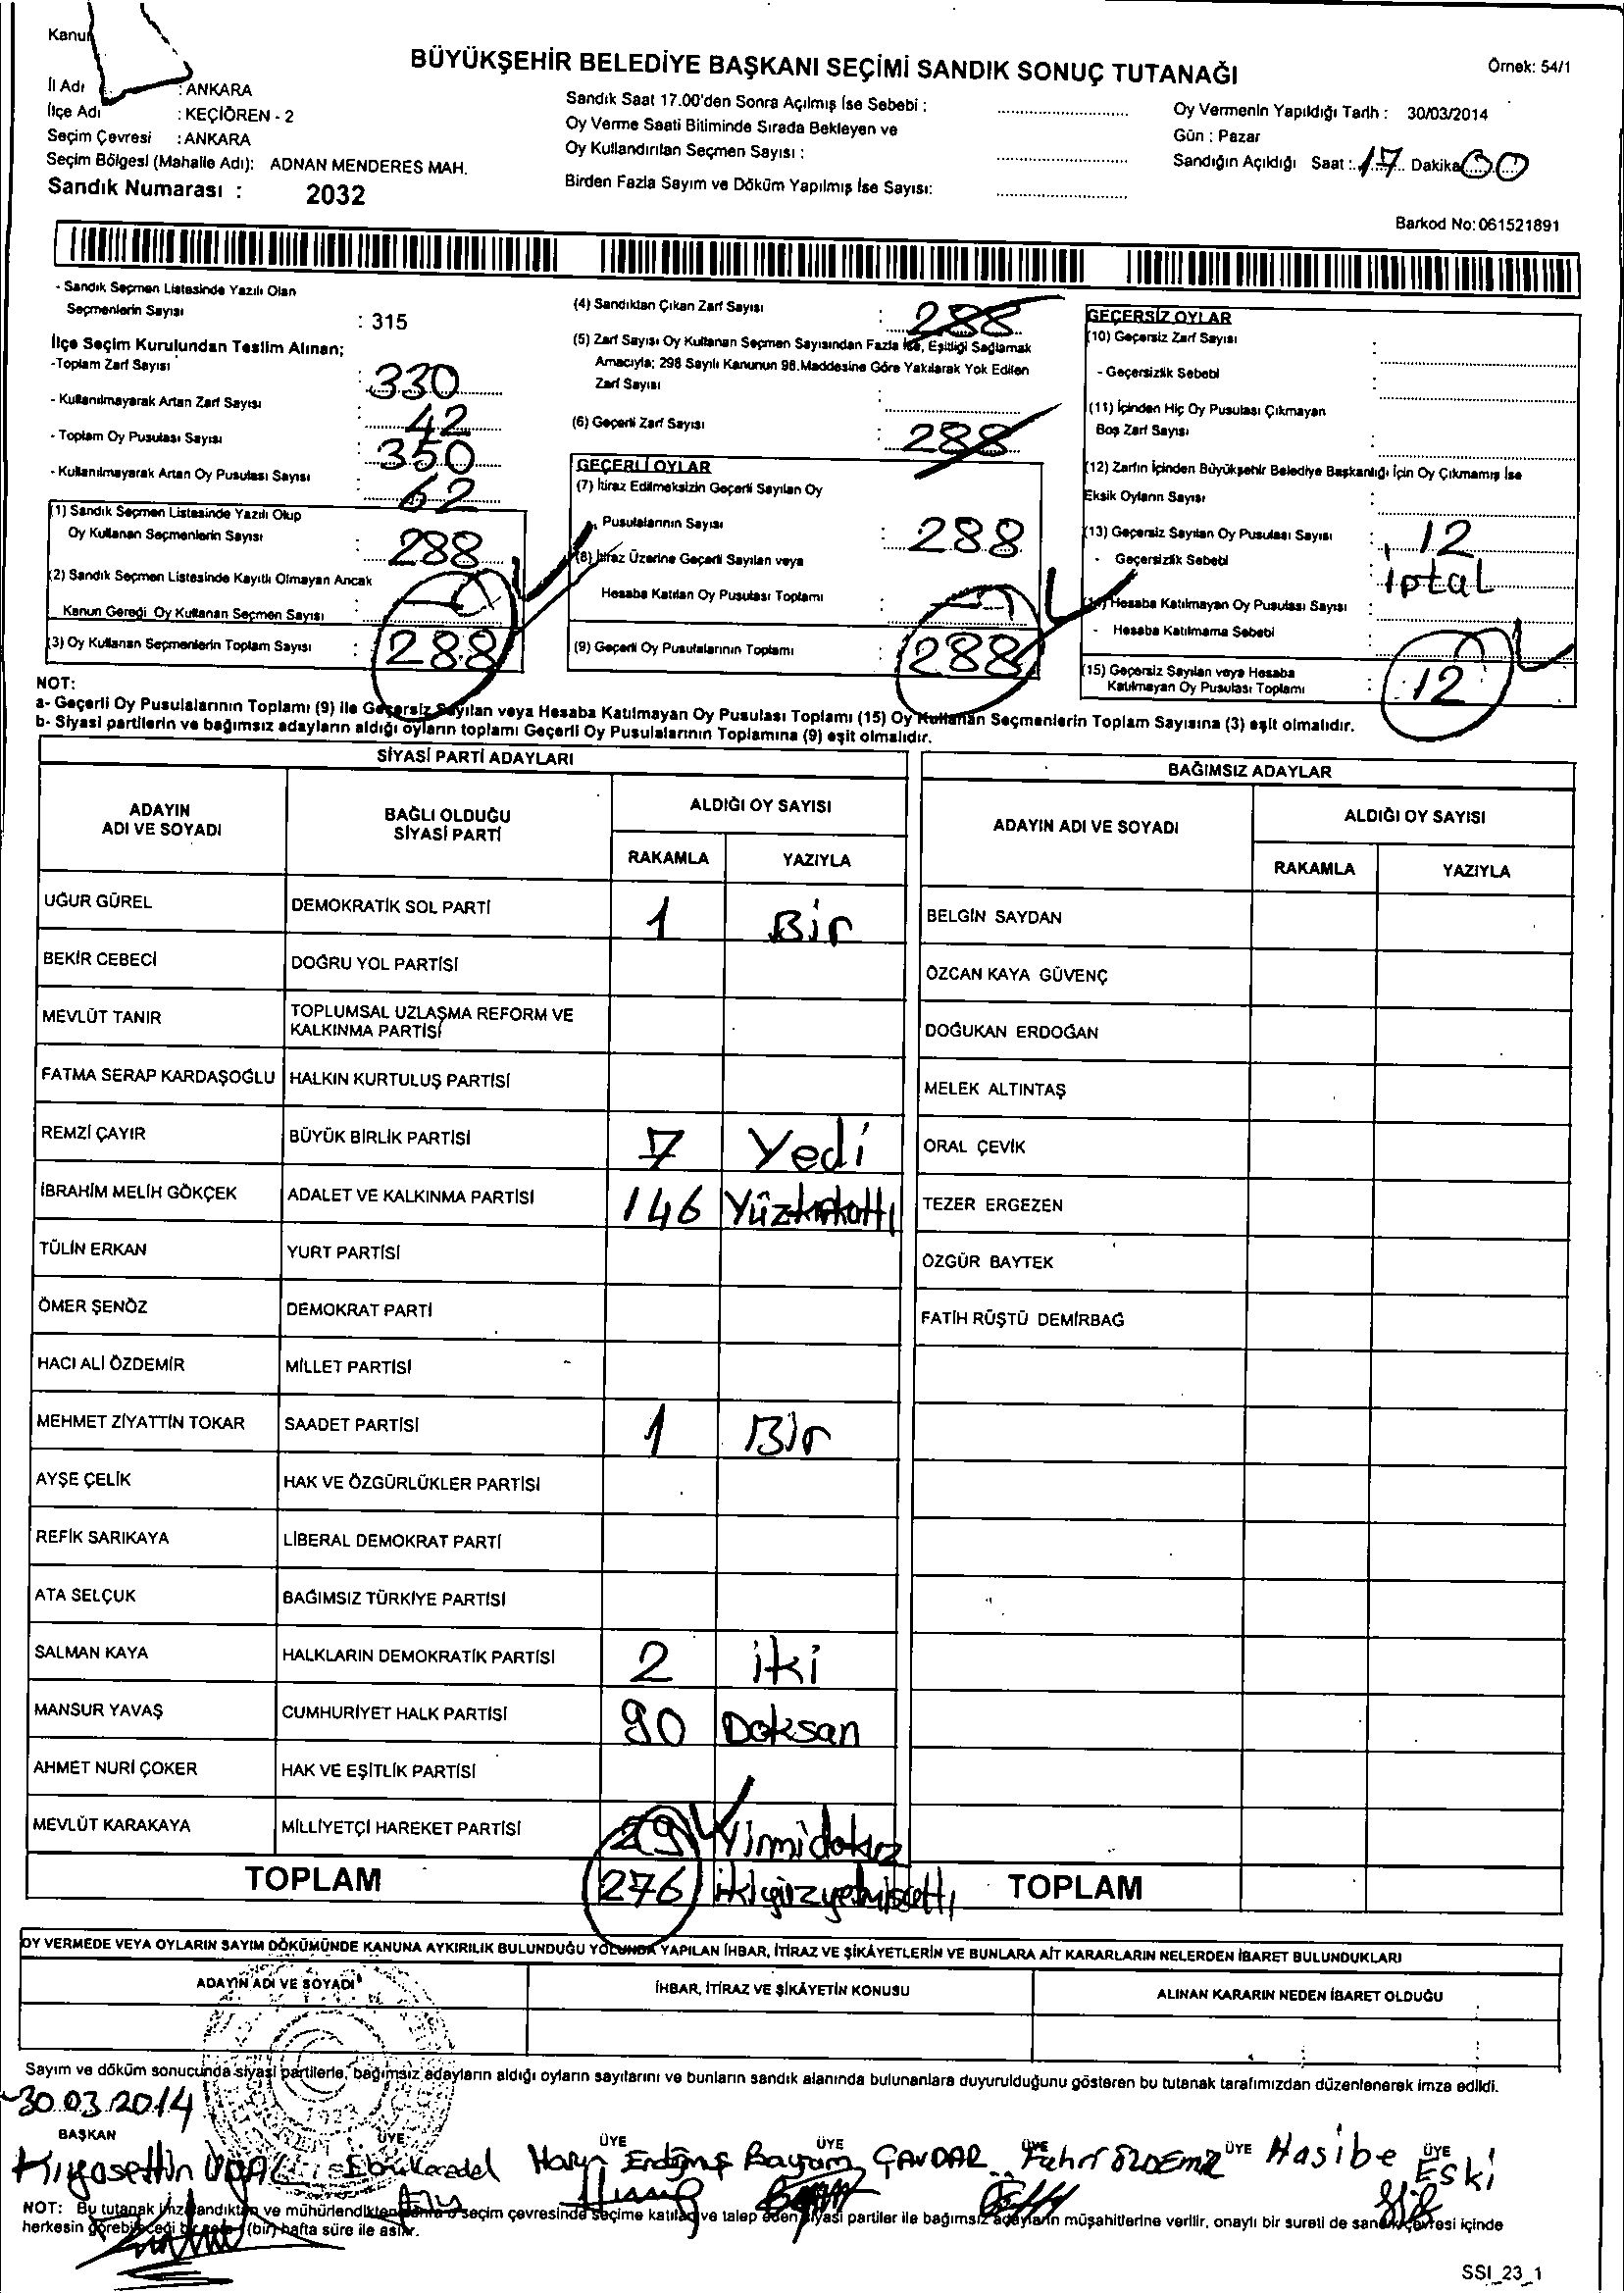 Kanu
BÜYÜKŞEHİR BELEDİYE BAŞKANI SEÇİMİ SANDIK SONUÇ TUTANAĞI
Örnek: 54/1
İl Adı : ANKARA
İlçe Adı : KEÇİÖREN - 2
Seçim Çevresi : ANKARA
Seçim Bölgesi (Mahalle Adı): ADNAN MENDERES MAH.
Sandık Numarası : 2032
Sandık Saat 17.00'den Sonra Açılmış İse Sebebi :
Oy Verme Saati Bitiminde Sırada Bekleyen ve
Oy Kullandırılan Seçmen Sayısı :
Birden Fazla Sayım ve Döküm Yapılmış İse Sayısı:
Oy Vermenin Yapıldığı Tarih : 30/03/2014
Gün : Pazar
Sandığın Açıldığı Saat : 17 Dakika 00
Barkod No: 061521891
- Sandık Seçmen Listesinde Yazılı Olan
Seçmenlerin Sayısı : 315
İlçe Seçim Kurulundan Teslim Alınan;
-Toplam Zarf Sayısı : 330
- Kullanılmayarak Artan Zarf Sayısı : 42
- Toplam Oy Pusulası Sayısı : 350
- Kullanılmayarak Artan Oy Pusulası Sayısı : 62
(1) Sandık Seçmen Listesinde Yazılı Olup
Oy Kullanan Seçmenlerin Sayısı : 288
(2) Sandık Seçmen Listesinde Kayıtlı Olmayan Ancak
Kanun Gereği Oy Kullanan Seçmen Sayısı :
(3) Oy Kullanan Seçmenlerin Toplam Sayısı : 288
(4) Sandıktan Çıkan Zarf Sayısı : 288
(5) Zarf Sayısı Oy Kullanan Seçmen Sayısından Fazla İse, Eşitliği Sağlamak
Amacıyla; 298 Sayılı Kanunun 98.Maddesine Göre Yakılarak Yok Edilen
Zarf Sayısı :
(6) Geçerli Zarf Sayısı : 288
GEÇERLİ OYLAR
(7) İtiraz Edilmeksizin Geçerli Sayılan Oy
Pusulalarının Sayısı : 288
(8) İtiraz Üzerine Geçerli Sayılan veya
Hesaba Katılan Oy Pusulası Toplamı :
(9) Geçerli Oy Pusulalarının Toplamı : 288
GEÇERSİZ OYLAR
(10) Geçersiz Zarf Sayısı :
- Geçersizlik Sebebi :
(11) İçinden Hiç Oy Pusulası Çıkmayan
Boş Zarf Sayısı :
(12) Zarfın İçinden Büyükşehir Belediye Başkanlığı İçin Oy Çıkmamış İse
Eksik Oyların Sayısı :
(13) Geçersiz Sayılan Oy Pusulası Sayısı : 12
- Geçersizlik Sebebi : iptal
(14) Hesaba Katılmayan Oy Pusulası Sayısı :
- Hesaba Katılmama Sebebi :
(15) Geçersiz Sayılan veya Hesaba
Katılmayan Oy Pusulası Toplamı : 12
NOT:
a- Geçerli Oy Pusulalarının Toplamı (9) ile Geçersiz Sayılan veya Hesaba Katılmayan Oy Pusulası Toplamı (15) Oy Kullanan Seçmenlerin Toplam Sayısına (3) eşit olmalıdır.
b- Siyasi partilerin ve bağımsız adayların aldığı oyların toplamı Geçerli Oy Pusulalarının Toplamına (9) eşit olmalıdır.
SİYASİ PARTİ ADAYLARI
ADAYIN ADI VE SOYADI BAĞLI OLDUĞU SİYASİ PARTİ ALDIĞI OY SAYISI
RAKAMLA YAZIYLA
UĞUR GÜREL DEMOKRATİK SOL PARTİ 1 Bir
BEKİR CEBECİ DOĞRU YOL PARTİSİ
MEVLÜT TANIR TOPLUMSAL UZLAŞMA REFORM VE KALKINMA PARTİSİ
FATMA SERAP KARDAŞOĞLU HALKIN KURTULUŞ PARTİSİ
REMZİ ÇAYIR BÜYÜK BİRLİK PARTİSİ 7 Yedi
İBRAHİM MELİH GÖKÇEK ADALET VE KALKINMA PARTİSİ 146 Yüzkırkaltı
TÜLİN ERKAN YURT PARTİSİ
ÖMER ŞENÖZ DEMOKRAT PARTİ
HACI ALİ ÖZDEMİR MİLLET PARTİSİ
MEHMET ZİYATTİN TOKAR SAADET PARTİSİ 1 Bir
AYŞE ÇELİK HAK VE ÖZGÜRLÜKLER PARTİSİ
REFİK SARIKAYA LİBERAL DEMOKRAT PARTİ
ATA SELÇUK BAĞIMSIZ TÜRKİYE PARTİSİ
SALMAN KAYA HALKLARIN DEMOKRATİK PARTİSİ 2 iki
MANSUR YAVAŞ CUMHURİYET HALK PARTİSİ 90 Doksan
AHMET NURİ ÇOKER HAK VE EŞİTLİK PARTİSİ
MEVLÜT KARAKAYA MİLLİYETÇİ HAREKET PARTİSİ 29 Yirmidokuz
TOPLAM 276 ikiyüzyetmişaltı
BAĞIMSIZ ADAYLAR
ADAYIN ADI VE SOYADI ALDIĞI OY SAYISI
RAKAMLA YAZIYLA
BELGİN SAYDAN
ÖZCAN KAYA GÜVENÇ
DOĞUKAN ERDOĞAN
MELEK ALTINTAŞ
ORAL ÇEVİK
TEZER ERGEZEN
ÖZGÜR BAYTEK
FATİH RÜŞTÜ DEMİRBAĞ
TOPLAM
OY VERMEDE VEYA OYLARIN SAYIM DÖKÜMÜNDE KANUNA AYKIRILIK BULUNDUĞU YOLUNDA YAPILAN İHBAR, İTİRAZ VE ŞİKÂYETLERİN VE BUNLARA AİT KARARLARIN NELERDEN İBARET BULUNDUKLARI
ADAYIN ADI VE SOYADI İHBAR, İTİRAZ VE ŞİKÂYETİN KONUSU ALINAN KARARIN NEDEN İBARET OLDUĞU
Sayım ve döküm sonucunda siyasi partilerle, bağımsız adayların aldığı oyların sayılarını ve bunların sandık alanında bulunanlara duyurulduğunu gösteren bu tutanak tarafımızdan düzenlenerek imza edildi.
30.03.2014
BAŞKAN ÜYE ÜYE ÜYE ÜYE ÜYE ÜYE
Bayram ÇAVDAR Fahri ÖZDEMİR Hasibe Eski
NOT: Bu tutanak imzalandıktan ve mühürlendikten sonra o seçim çevresinde seçime katılan ve talep eden siyasi partiler ile bağımsız adayların müşahitlerine verilir, onaylı bir sureti de sandık çevresi içinde
herkesin görebileceği bir yere (bir) hafta süre ile asılır.
SSI_23_1